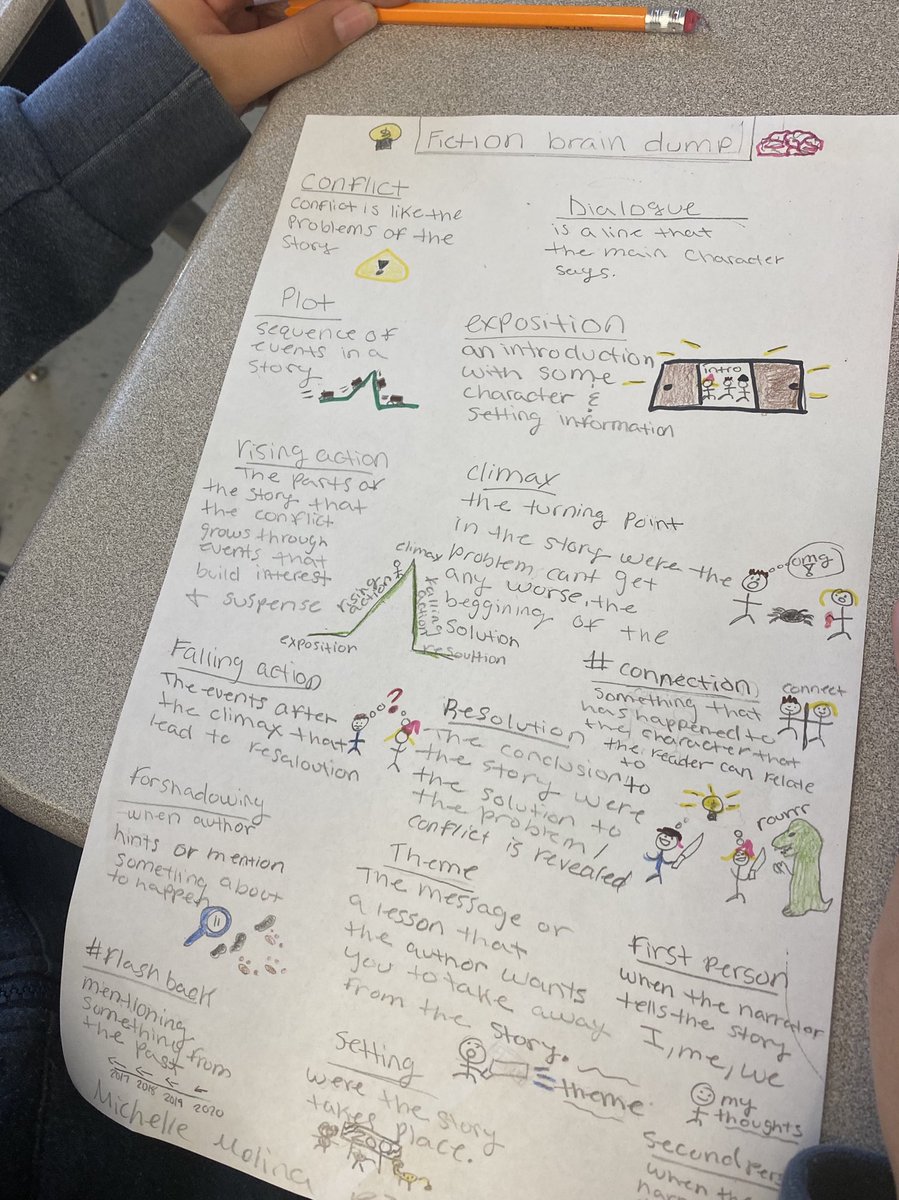 Fiction brain dump
Conflict
conflict is like the
problems of the
story
!
Dialogue
is a line that
the main character
says.
Plot
sequence of
events in a
story
exposition
an introduction
with some
character &
setting information
intro
rising action
The parts of
the story that
the conflict
grows through
events that
build interest
+ suspense
climax
the turning point
in the story were the
problem cant get
any worse, the
beggining of the
solution
omg
climax
rising
action
falling
action
exposition
resoultion
Falling action
The events after
the climax that
lead to resaloution
?
Resolution
The conclusion to
the story were
the solution to
the problem/
conflict is revealed
# connection
something that
has happened to
the character that
the reader can relate
to
connect
rourrr
forshadowing
when author
hints or mention
something about
to happen
Theme
The message or
a lesson that
the author wants
you to take away
from the story.
= theme
first person
when the narrator
tells the story
I, me, we
my
thoughts
#flash back
mentioning
something from
the past
2017 2018 2019 2020
Setting
were the story
takes place.
zoo
Second per
when th
nar
Michelle Molina